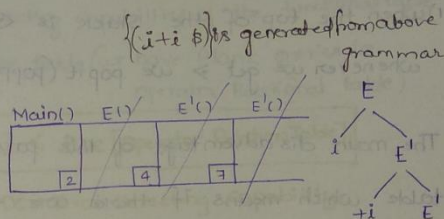 {(i+i $)} is generated from above
grammar
Main() E() E'() E'()
2 4 7
E
i E'
+i E'